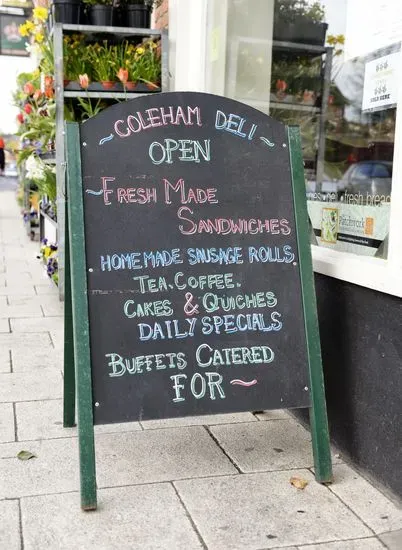 ~ COLEHAM DELI ~
OPEN
~ FRESH MADE
SANDWICHES
HOMEMADE SNUSAGE ROLLS
TEA. COFFEE.
CAKES & QUICHES
DAILY SPECIALS
BUFFETS CATERED
FOR ~
fresh bread
Patchwork